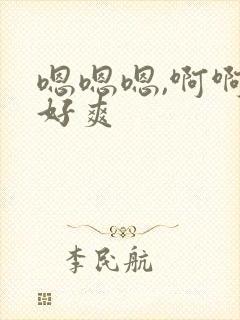 嗯嗯嗯,啊啊
好爽
李民航